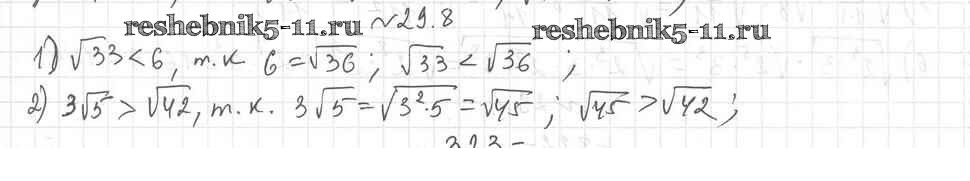 №29.8
reshebnik5-11.ru reshebnik5-11.ru
1) √33 < 6, т.к 6 = √36 ; √33 < √36 ;
2) 3√5 > √42, т.к. 3√5 = √3²·5 = √45 ; √45 > √42 ;